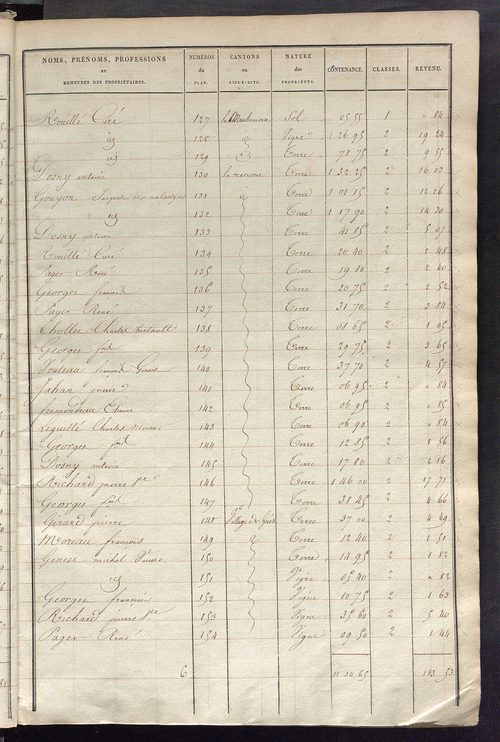 NOMS, PRÉNOMS, PROFESSIONS ET DEMEURES DES PROPRIÉTAIRES. NUMÉROS du PLAN. CANTONS ou LIEUX-DITS. NATURE des PROPRIÉTÉS. CONTENANCE. CLASSES. REVENU.
Rouillé Curé 127 Sol 05 55 1 " 84
id 128 Vigne 1 26 95 2 19 24
id 129 Terre 78 75 2 9 55
Dosny antoine 130 Terre 1 32 25 2 16 03
Gouyon Jacques 131 id Terre 1 01 15 2 12 26
id 132 Terre 1 17 90 2 14 30
Dosny antoine 133 Terre 41 85 2 5 07
Rouillé Curé 134 Terre 20 40 2 2 48
Pager René 135 Terre 19 80 2 2 40
Georges francois 136 Terre 20 75 2 2 52
Pager René 137 Terre 31 70 2 3 84
Charles 138 Terre 08 65 2 1 05
Georges fois 139 Terre 29 75 2 3 65
francois 140 Terre 37 70 2 4 57
Jahan pierre 141 Terre 06 95 2 " 84
Etienne 142 Terre 06 95 2 " 85
Lequillé Charles 143 Terre 06 90 2 " 84
Georges fois 144 Terre 12 85 2 1 56
Dosny antoine 145 Terre 17 80 2 2 16
Richard pierre 146 Terre 1 46 00 2 17 71
Georges fois 147 Terre 38 45 2 4 66
Girard pierre 148 Village de Terre 37 00 2 4 49
Moreau francois 149 Terre 12 40 2 1 51
Genest michel 150 Terre 14 95 2 1 82
id 151 Vigne 05 40 2 " 82
Georges francois 152 Vigne 10 75 2 1 63
Richard pierre 153 Vigne 35 60 2 5 40
Pager René 154 Vigne 09 50 2 1 44
6 11 34 65 143 53